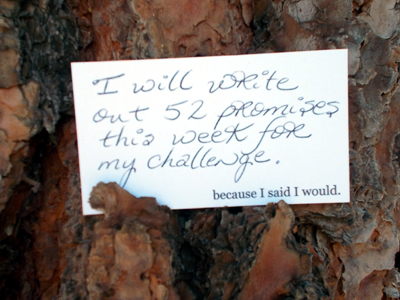 I will write
out 52 promises
this week for
my challenge.
because I said I would.